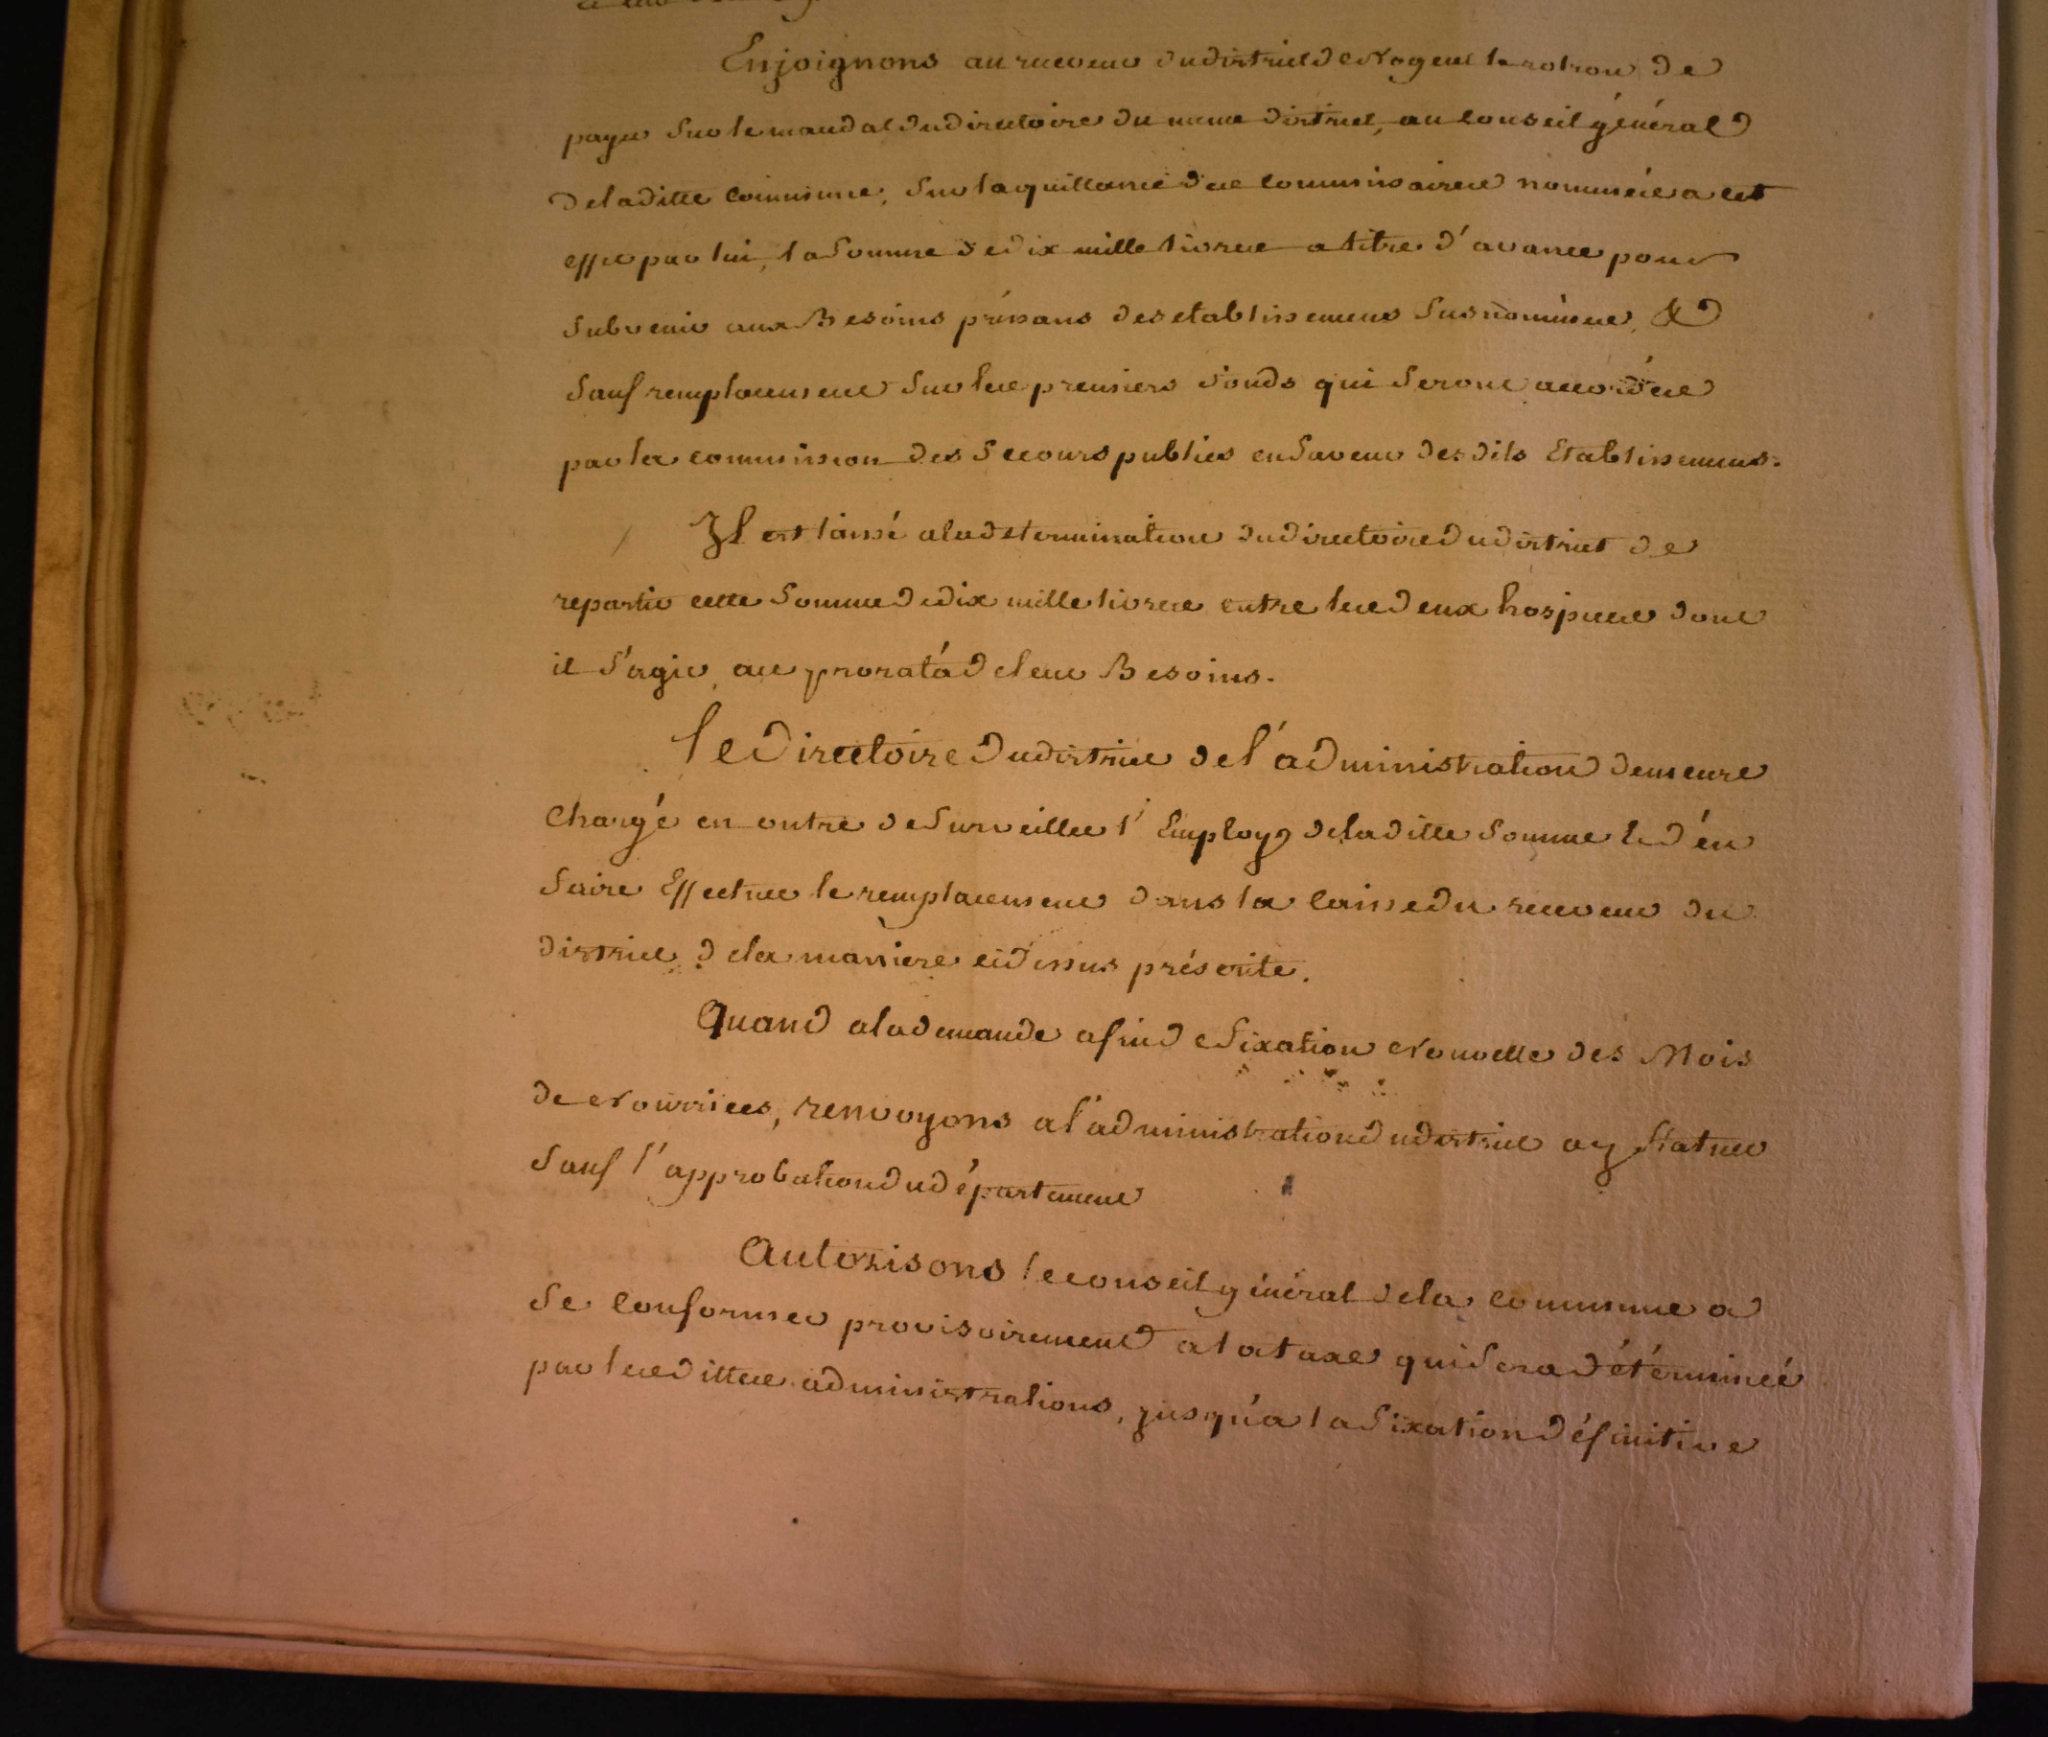 Enjoignons au receveur du district de Nogent le rotrou, de
payer sur le mandat du directoire du meme district, au conseil général
de laditte commune, sur la quittance des commissaires nommées a cet
effet par lui, la somme de dix mille livres a titre d'avance pour
subvenir aux Besoins préssans des etablissemens susnommées, &
sauf remplacement sur les premiers fonds qui seront accordées
par la commission des secours publics en faveur des dits Etablissemens.
Il est laissé a la determination du directoire du district de
repartir cette somme de dix mille livres entre les deux hospices dont
il s'agit, au proratá de leur Besoins.
le Directoire du district de l'administration demeure
Chargé en outre de surveiller l'Employ de laditte somme & d'én
faire Effectuer le remplacement dans la caisse du receveur du
district de la maniere cidessus préscrite.
Quand a la demande afin de fixation Nouvelle des Mois
de Nourrices, renvoyons a l'administration du district a y statuer
sauf l'approbation du département
Autorisons le conseil général de la commune a
se conformer provisoirement a la taxe qui sera détérminéé
par lesdittes administrations, jusqu'a la fixation définitive